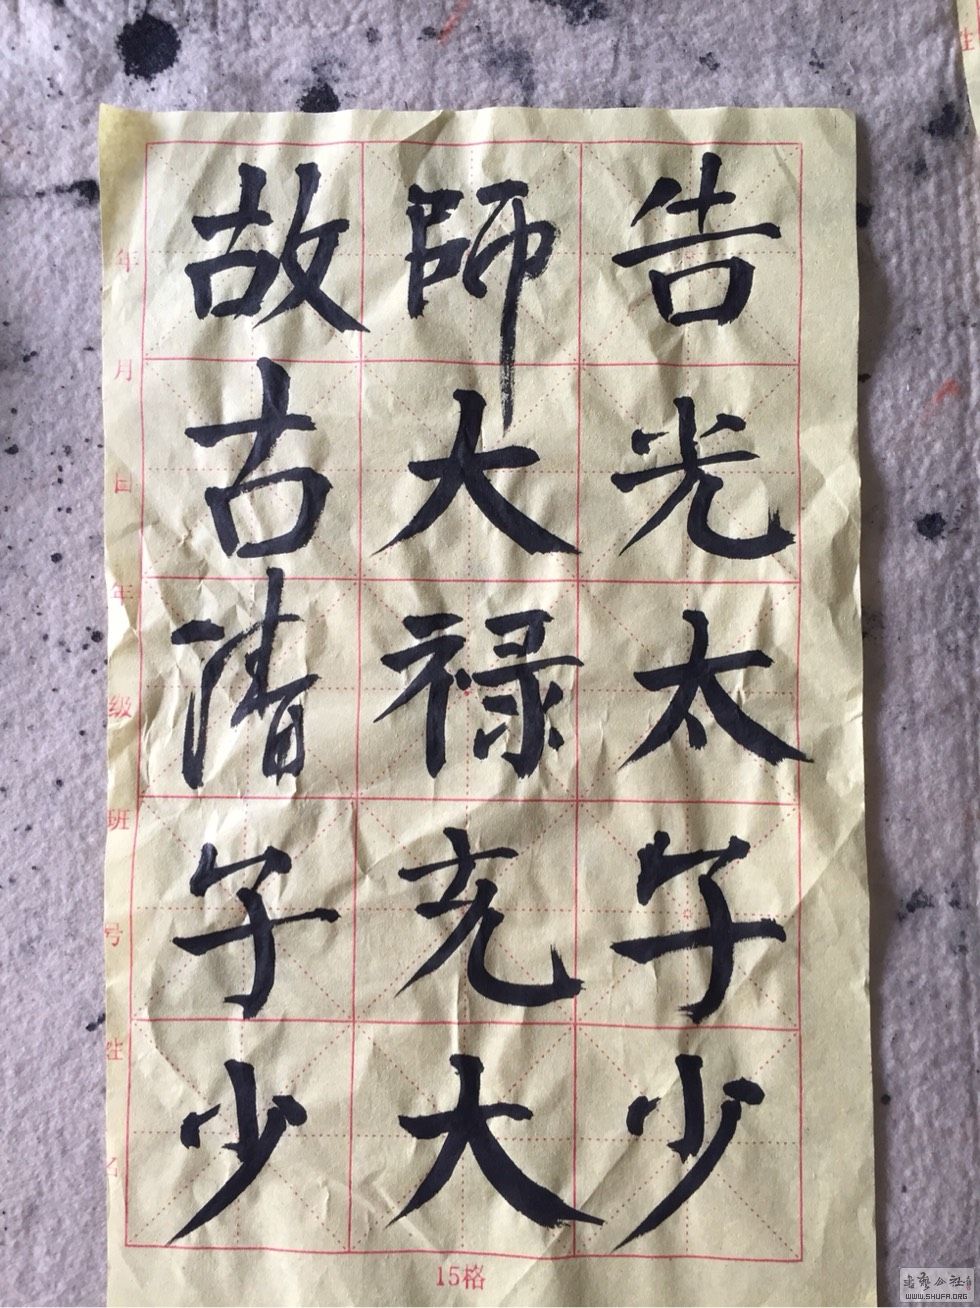 告光太子少
師大禄充大
故古清子少
年月日年级班号姓名
15格
姓
WWW.SHUFA.ORG